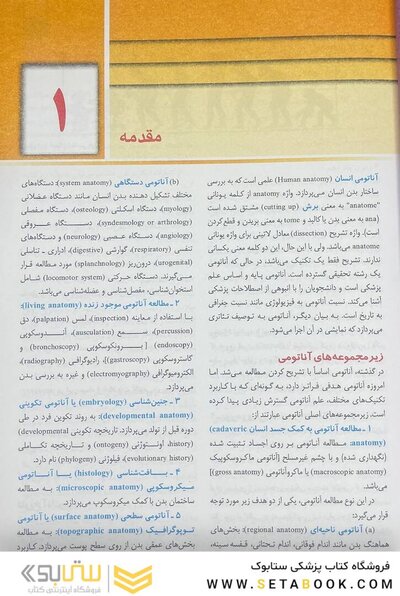 ۱
مقدمه
آناتومی انسان (Human anatomy) علمی است که به بررسی
ساختار بدن انسان می‌پردازد. واژه anatomy از کلمه یونانی
"anatome" به معنی برش (cutting up) مشتق شده است
(ana به معنی بدن یا کالبد و tome به معنی بریدن و قطع کردن
است). واژه تشریح (dissection) معادل لاتینی برای واژه یونانی
anatome می‌باشد. ولی با این حال، این دو کلمه معنی یکسانی
ندارند. تشریح فقط یک تکنیک می‌باشد، در حالی که آناتومی
یک رشته تحقیقی گسترده است. آناتومی پایه و اساس علم
پزشکی است و دانشجویان را با انبوهی از اصطلاحات پزشکی
آشنا می‌کند. نسبت آناتومی به فیزیولوژی مانند نسبت جغرافی
به تاریخ است. به بیان دیگر، آناتومی به توصیف تئاتری
می‌پردازد که نمایشی در آن اجرا می‌شود.
زیرمجموعه‌های آناتومی
در گذشته، آناتومی اساساً با تشریح کردن مطالعه می‌شد. اما
امروزه آناتومی هدفی فراتر دارد، به گونه‌ای که با کاربرد
تکنیک‌های مختلف، علم آناتومی گسترش زیادی پیدا کرده
است. زیرمجموعه‌های اصلی آناتومی عبارتند از:
۱ ـ مطالعه آناتومی به کمک جسد انسان (cadaveric
anatomy): مطالعه آناتومی بر روی اجساد تثبیت شده
(نگهداری شده) و با چشم غیرمسلح [آناتومی ماکروسکوپیک
(macroscopic anatomy) یا ماکروآناتومی (gross anatomy)]
می‌باشد.
در این نوع مطالعه آناتومی، یکی از دو هدف زیر مورد توجه
قرار می‌گیرد:
(a) آناتومی ناحیه‌ای (regional anatomy): بخش‌های
هماهنگ بدن مانند اندام فوقانی، اندام تحتانی، قفسه سینه،
(b) آناتومی دستگاهی (system anatomy): دستگاه‌های
مختلف تشکیل دهنده بدن انسان مانند دستگاه عضلانی
(myology)، دستگاه اسکلتی (osteology)، دستگاه مفصلی
(syndesmology or arthrology)، دستگاه عروقی
(angiology)، دستگاه عصبی (neurology) و دستگاه‌های
تنفسی (respiratory)، گوارشی (digestive)، ادراری ـ تناسلی
(urogenital)، درون‌ریز (splanchnology) مورد مطالعه قرار
می‌گیرند. دستگاه حرکتی (locomotor system) شامل
استخوان‌شناسی، مفصل‌شناسی و عضله‌شناسی می‌باشد.
۲ ـ مطالعه آناتومی موجود زنده (living anatomy):
با استفاده از معاینه (inspection)، لمس (palpation)، دق
(percussion)، سمع (ausculation)، آندوسکوپی
(endoscopy) [برونکوسکوپی (bronchoscopy) و
گاستروسکوپی (gastroscopy)]، رادیوگرافی (radiography)،
الکترومیوگرافی (electromyography) و غیره به بررسی بدن
می‌پردازد.
۳ ـ جنین‌شناسی (embryology) یا آناتومی تکوینی
(developmental anatomy): به روند تکوین فرد در طی
دوره قبل از تولد می‌پردازد. تاریخچه تکوینی (developmental
history)، اونتوژنی (ontogeny) و تاریخچه تکاملی
(evolutionary history)، فیلوژنی (phylogeny) نام دارد.
۴ ـ بافت‌شناسی (histology) یا آناتومی
میکروسکوپی (microscopic anatomy): به مطالعه
ساختمان بدن با کمک میکروسکوپ می‌پردازد.
۵ ـ آناتومی سطحی (surface anatomy) یا آناتومی
توپوگرافیک (topographic anatomy): به مطالعه
بخش‌های عمقی بدن از روی سطح پوست می‌پردازد. کاربرد
ستابوک
فروشگاه اینترنتی کتاب
فروشگاه کتاب پزشکی ستابوک
WWW.SETABOOK.COM